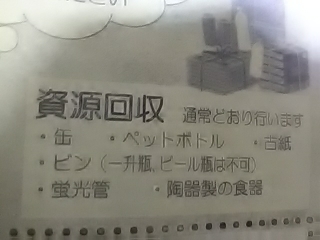 ださい
資源回収 通常どおり行います
・缶 ・ペットボトル ・古紙
・ビン(一升瓶、ビール瓶は不可)
・蛍光管 ・陶器製の食器